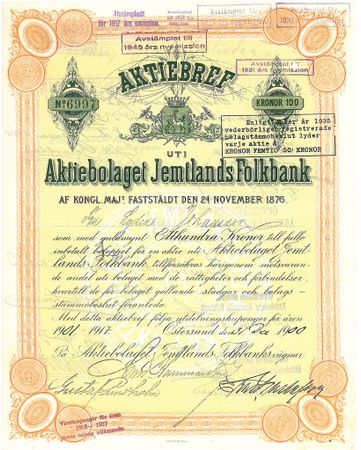 Afstämpladt
för 1917 års emission.
Avstämplat till
1945 års nyemission
Avstämplat till
1951 års emission
AKTIEBREF
No 6997
KRONOR 100
Enligt under år 1935
vederbörligen registrerade
bolagstämmobeslut lyder
varje aktie å
KRONOR FEMTIO 50/ KRONOR
UTI
Aktiebolaget Jemtlands Folkbank
AF KONGL. MAJ:T FASTSTÄLDT DEN 24 NOVEMBER 1876.
Johansson
som med guldmynt Etthundra Kronor till fullo
inbetalt beloppet för en aktie uti Aktiebolaget Jemt-
lands Folkbank, tillförsäkras härigenom motsvaran-
de andel uti bolaget med de rättigheter och förbindelser,
hvartill de för bolaget gällande stadgar och bolags-
stämmobeslut föranleda.
Med detta aktiebref följa utdelningskuponger för åren
1901-1917. Östersund den Dec 1900
På Aktiebolaget Jemtlands Folkbanks vägnar:
Vinstkuponger för åren
1918 - 1937